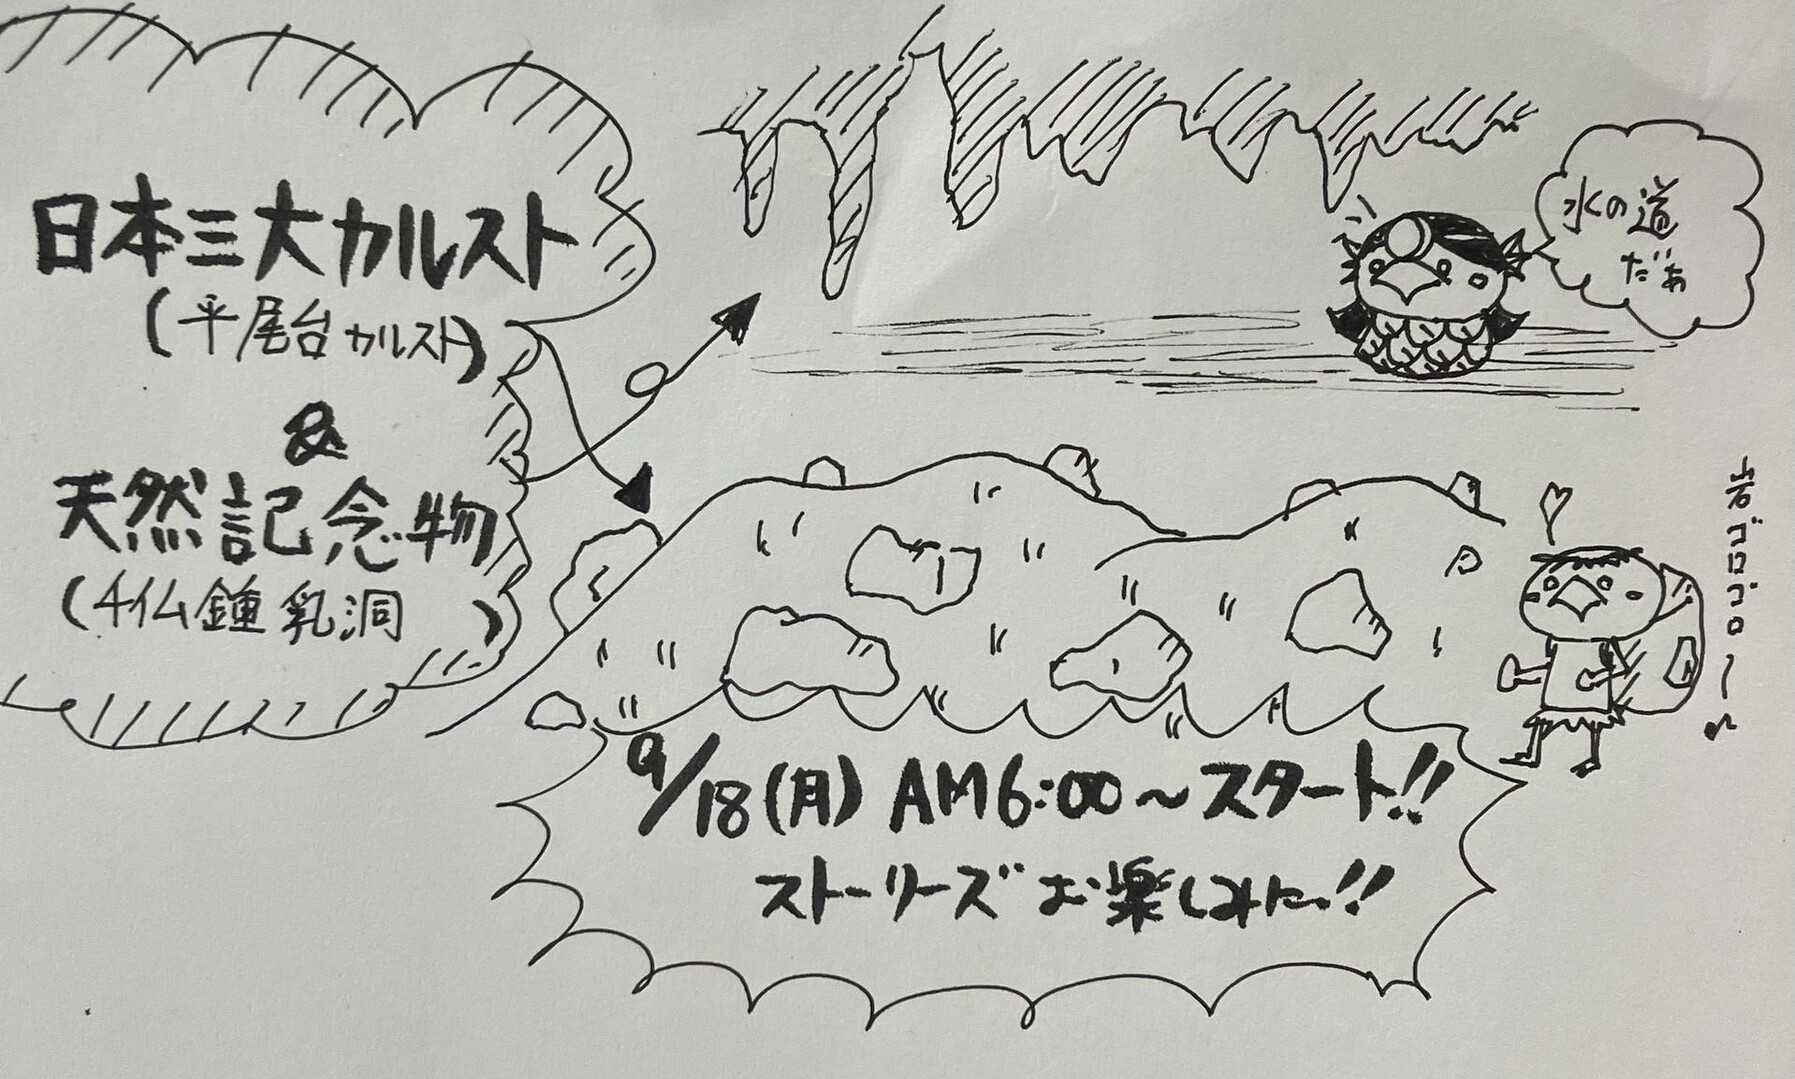 日本三大カルスト
(平尾台カルスト)
&
天然記念物
(千仏鍾乳洞)
水の道
だぁ
岩ゴロゴロ〜♪
9/18(月) AM6:00〜スタート!!
ストーリーズお楽しみに!!